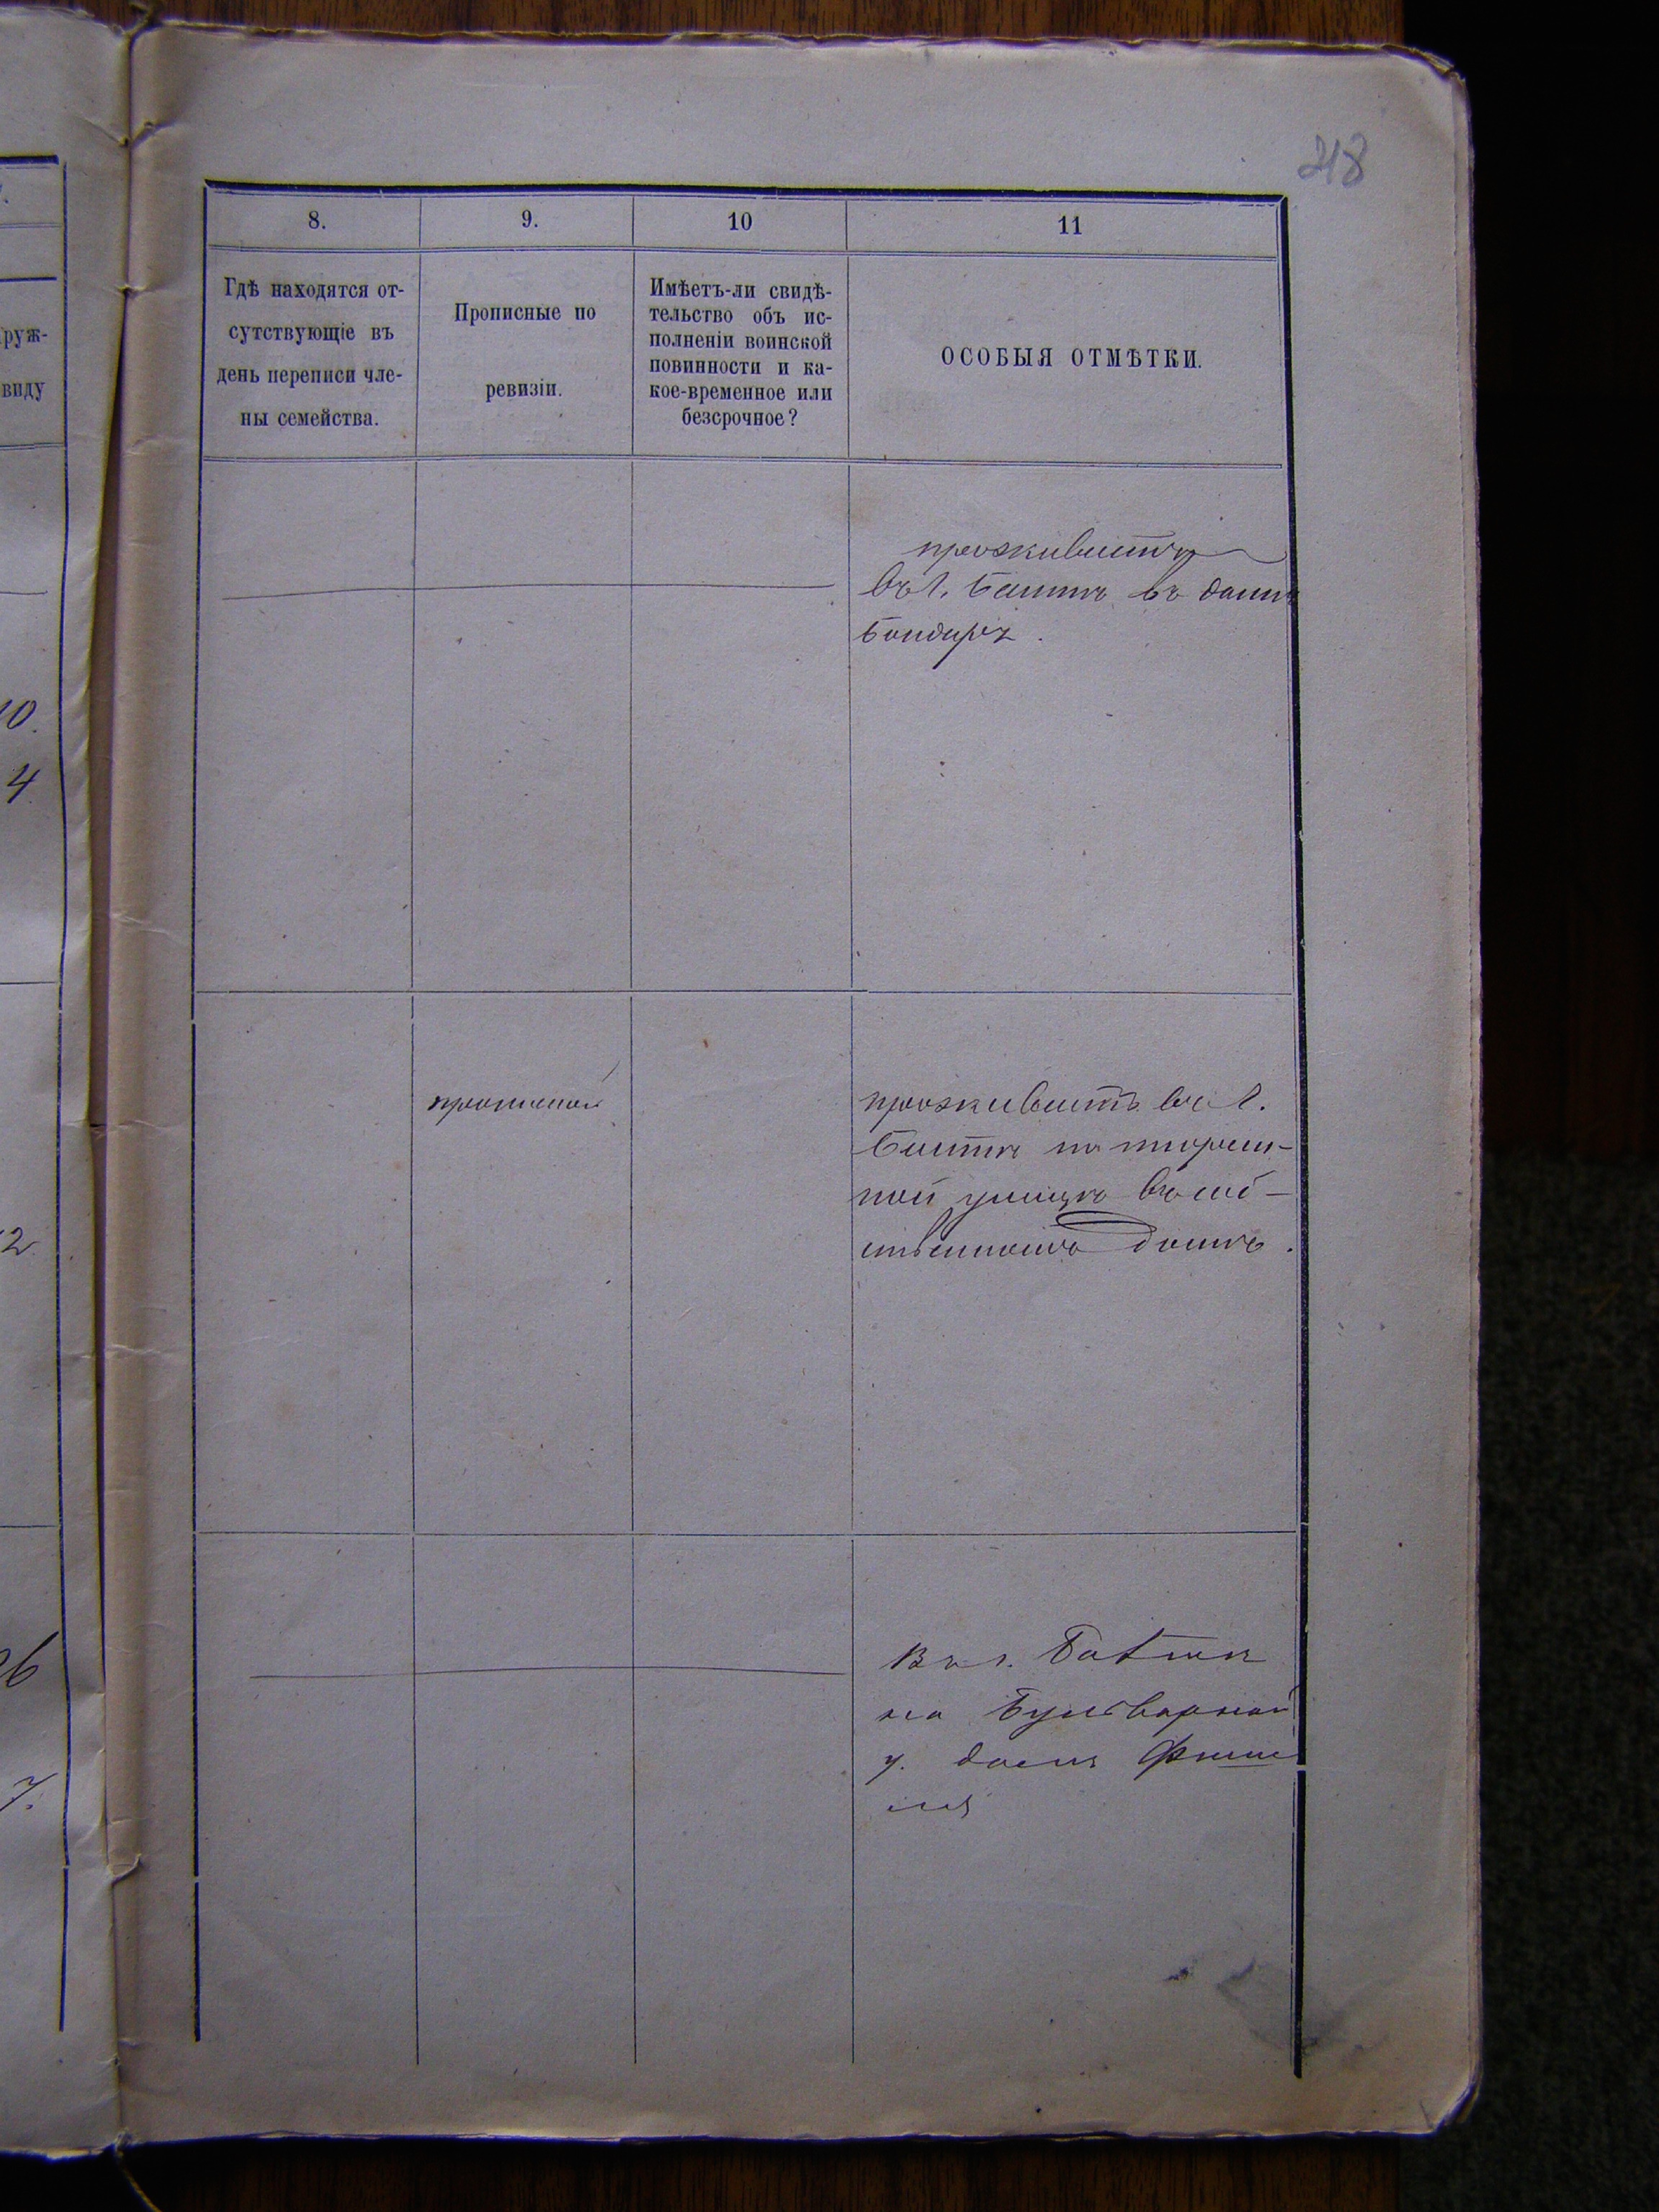 218
8.
9.
10
11
Гдѣ находятся от-
сутствующіе въ
день переписи чле-
ны семейства.
Прописные по
ревизіи.
Имѣетъ-ли свидѣ-
тельство объ ис-
полненіи воинской
повинности и ка-
кое-временное или
безсрочное?
ОСОБЫЯ ОТМѢТКИ.
руж-
виду
10.
4
2
26
7.
проживаетъ
въ г. Балтѣ въ домѣ
прописной
проживаетъ въ г.
Балтѣ на
ной улицѣ въ соб-
ственномъ домѣ.
Въ г. Балтѣ
на Бульварной
у. домъ